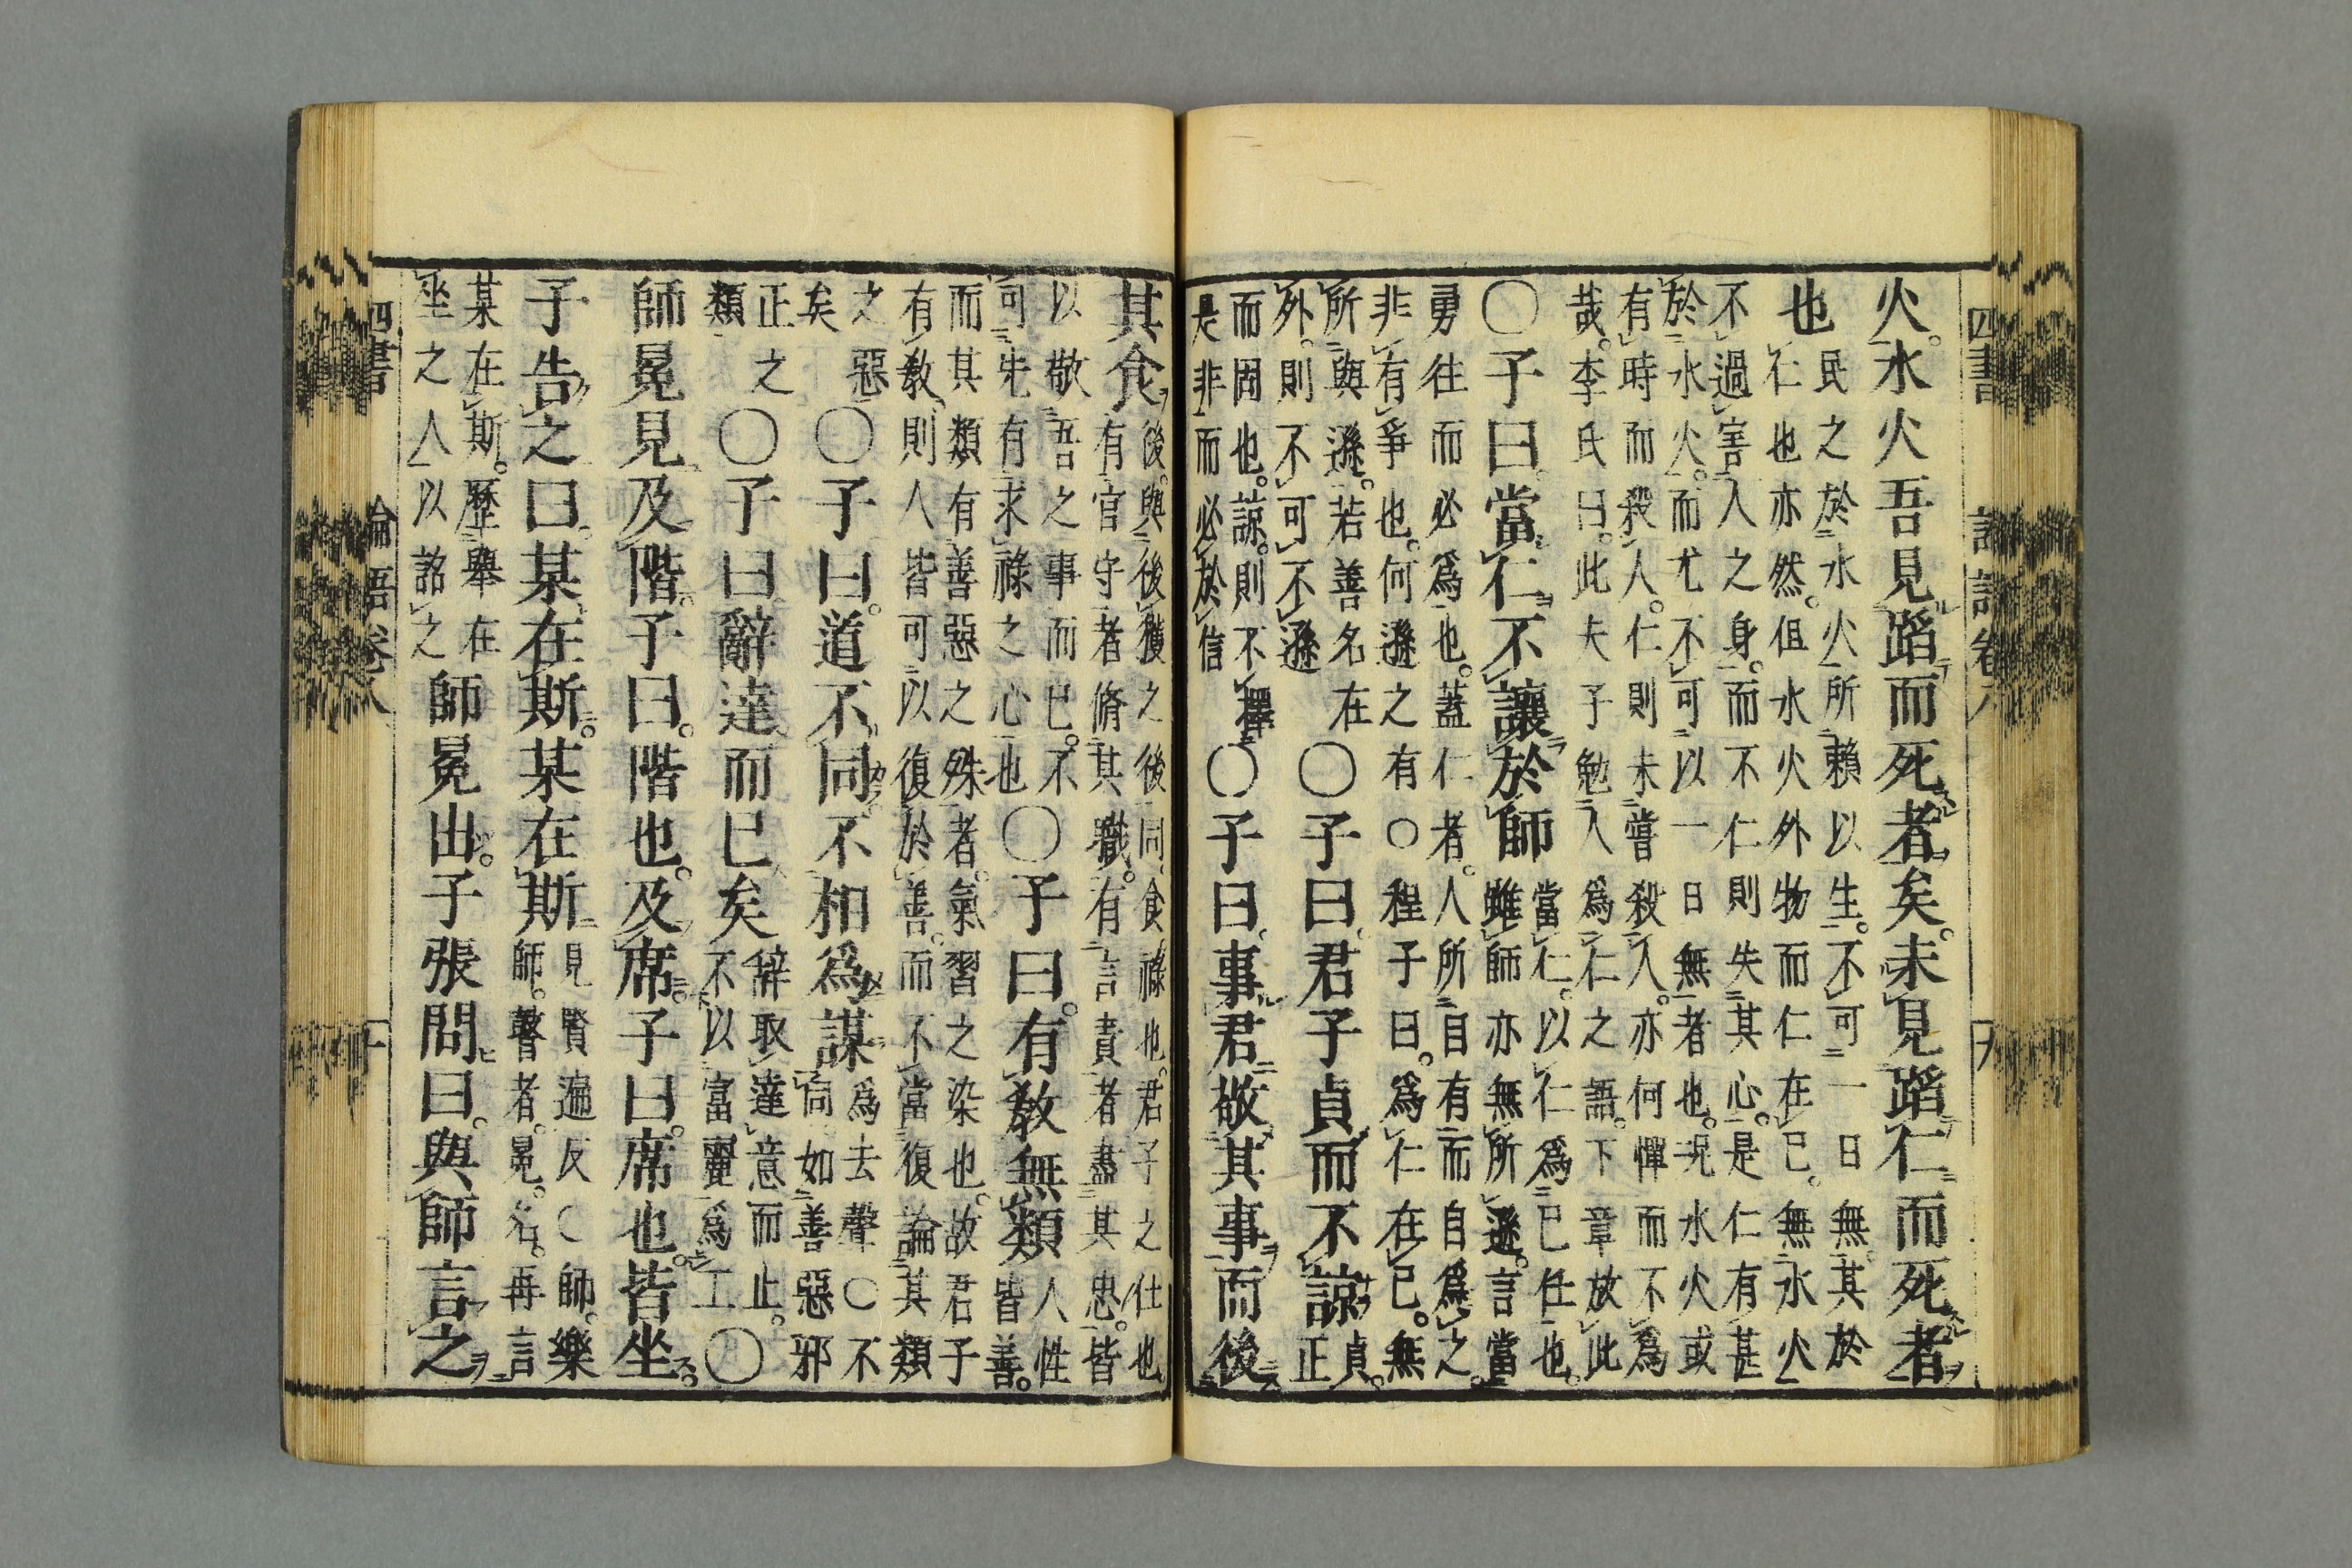 四書 論語卷八 九
火。水火吾見蹈而死者矣。未見蹈仁而死者
也
民之於水火所賴以生。不可一日無。其於
仁也亦然。但水火外物而仁在己。無水火
不過害人之身。而不仁則失其心。是仁有甚
於水火。而尤不可以一日無者也。況水火或
有時而殺人。仁則未嘗殺人。亦何憚而不爲
哉。李氏曰。此夫子勉人爲仁之語。下章放此
○子曰。當仁不讓於師
當仁。以仁爲己任也。
雖師亦無所遜。言當
勇往而必爲也。蓋仁者。人所自有而自爲之。
非有爭也。何遜之有○程子曰。爲仁在己。無
所與遜。若善名在
外。則不可不遜
○子曰。君子貞而不諒
貞。
正
而固也。諒。則不擇
是非而必於信
○子曰。事君敬其事而後
其食
後。與後獲之後同。食祿也。君子之仕也。
有官守者脩其職。有言責者盡其忠。皆
以敬吾之事而已。不
可先有求祿之心也
○子曰。有教無類
人性
皆善。
而其類有善惡之殊者。氣習之染也。故君子
有教。則人皆可以復於善。而不當復論其類
之惡
矣
○子曰。道不同不相爲謀
爲去聲○不
同。如善惡邪
正之
類
○子曰。辭達而已矣
辭取達意而止。
不以富麗爲工
○
師冕見。及階。子曰。階也。及席。子曰。席也。皆坐。
子告之曰。某在斯。某在斯
見賢遍反○師。樂
師。瞽者。冕。名。再言
某在斯。歷舉在
坐之人以詔之
師冕出。子張問曰。與師言之
四書 論語卷八 十